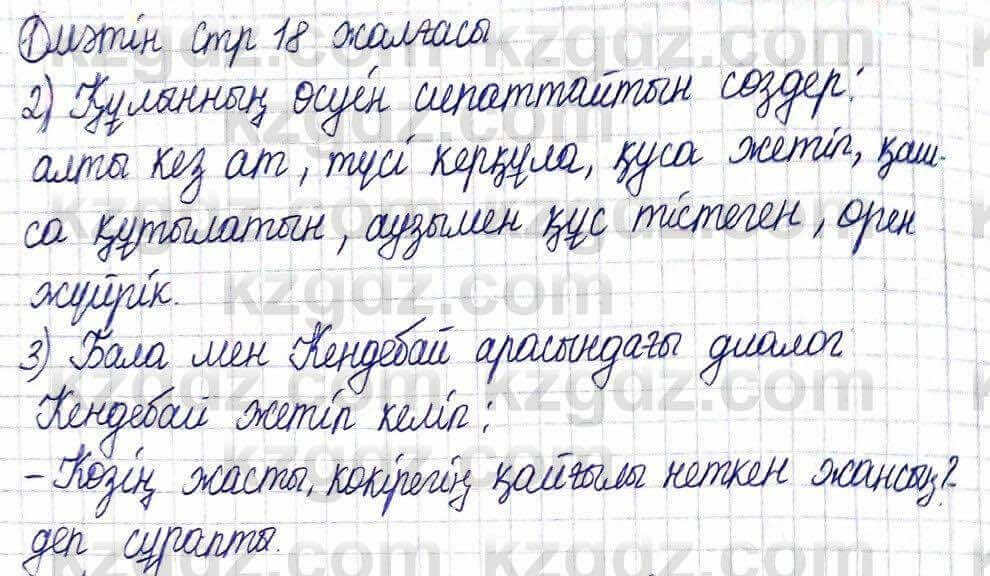 1) мәтін стр 18 жалғасы
2) Құлынның өсуін сипаттайтын сөздер:
алты кез ат, түсі керқұла, қуса жетіп, қаш-
са құтылатын, аузымен құс тістеген, өрен
жүйрік.
3) Бала мен Кендебай арасындағы диалог
Кендебай жетіп келіп:
- Көзің жасты, көкірегің қайғылы неткен жансың?-
деп сұрапты.